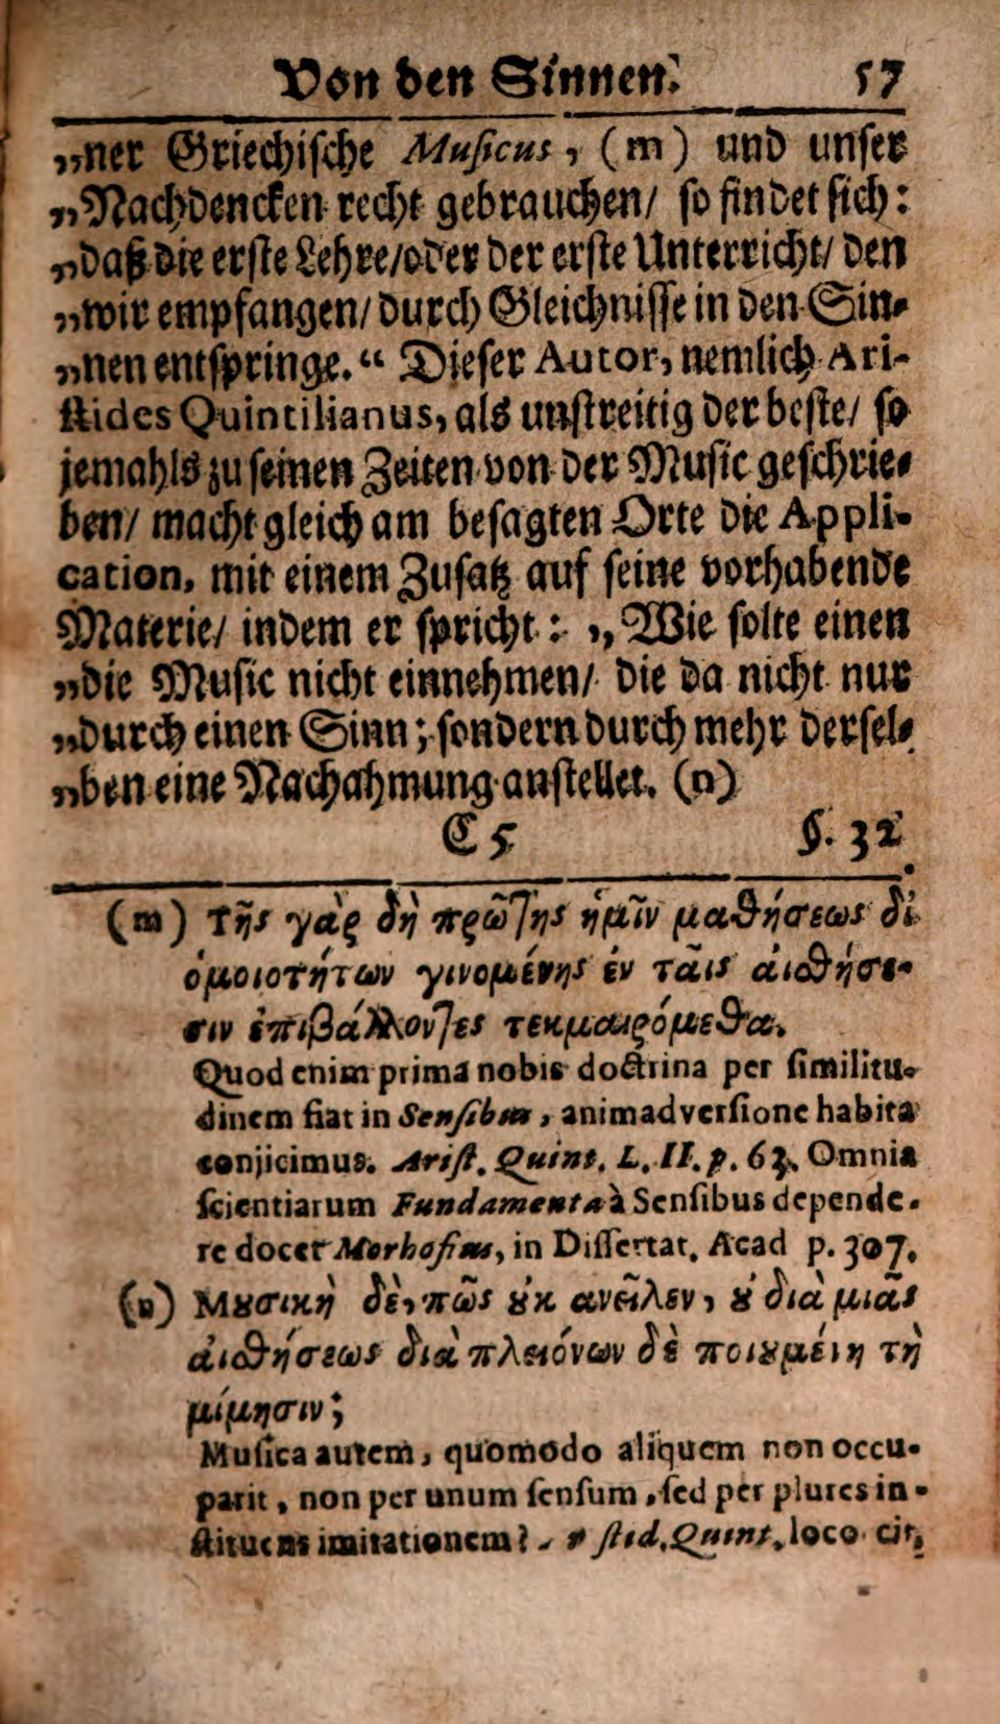 Von den Sinnen. 57
„ner Griechische Musicus, (m) und unser
„Nachdencken recht gebrauchen/ so findet sich:
„daß die erste Lehre/oder der erste Unterricht/ den
„wir empfangen/ durch Gleichnisse in den Sin-
„nen entspringe.“ Dieser Autor, nemlich Ari-
stides Quintilianus, als unstreitig der beste/ so
jemahls zu seinen Zeiten von der Music geschrie-
ben/ macht gleich am besagten Orte die Appli-
cation, mit einem Zusatz auf seine vorhabende
Materie/ indem er spricht: „Wie solte einen
„die Music nicht einnehmen/ die da nicht nur
„durch einen Sinn; sondern durch mehr dersel-
„ben eine Nachahmung anstellet. (n)
C 5 §. 32.
(m) Τῆς γὰρ δὴ πρώτης ἡμῖν μαθήσεως δἰ
ὁμοιοτήτων γινομένης ἐν ταῖς ἀισθήσε-
σιν ἐπιβάλλοντες τεκμαιρόμεθα.
Quod enim prima nobis doctrina per similitu-
dinem fiat in Sensibus, animadversione habita
conjicimus. Arist. Quint. L. II. p. 63. Omnia
scientiarum Fundamenta à Sensibus depende-
re docet Morhofius, in Dissertat. Acad p. 307.
(n) Μȣσικὴ δὲ, πῶς ȣκ ανεῖλεν, ȣ διὰ μιᾶς
ἀισθήσεως διὰ πλειόνων δὲ ποιȣμένη τὴ
μίμησιν;
Musica autem, quomodo aliquem non occu-
parit, non per unum sensum, sed per plures in-
stituens imitationem? stid. Quint. loco cit.